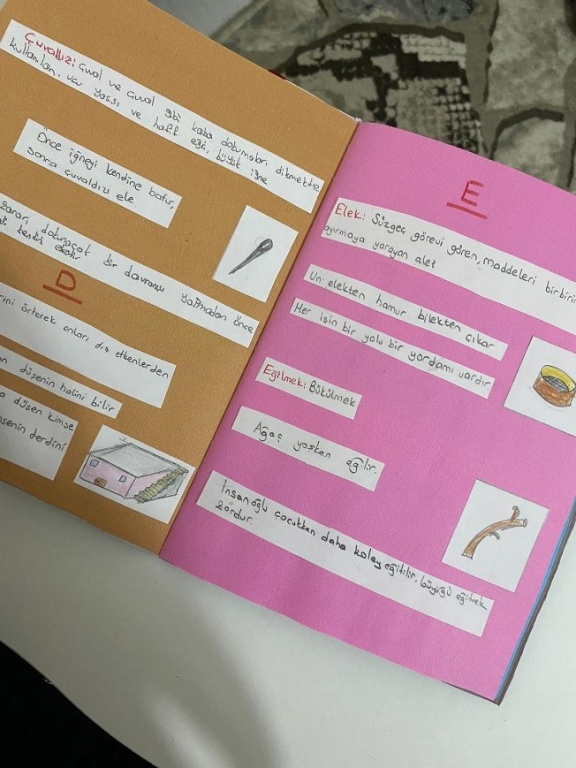 Çuvaldız: Çuval ve çuval gibi kaba dokumaları dikmekte
kullanılan, ucu yassı ve hafif eğri, büyük iğne
Önce iğneyi kendine batır,
sonra çuvaldızı ele.
zararı dokunacak bir davranışı yapmadan önce
D
örterek onları dış etkenlerden
düşenin halini bilir
düşen kimse
derdini
E
Elek: Süzgeç görevi gören, maddeleri
ayırmaya yarayan alet
Un elekten hamur bilekten çıkar
Her işin bir yolu bir yordamı vardır
Eğilmek: Bükülmek
Ağaç yaşken eğilir.
İnsanoğlu çocukken daha kolay eğitilir, büyüğü eğitmek
zordur